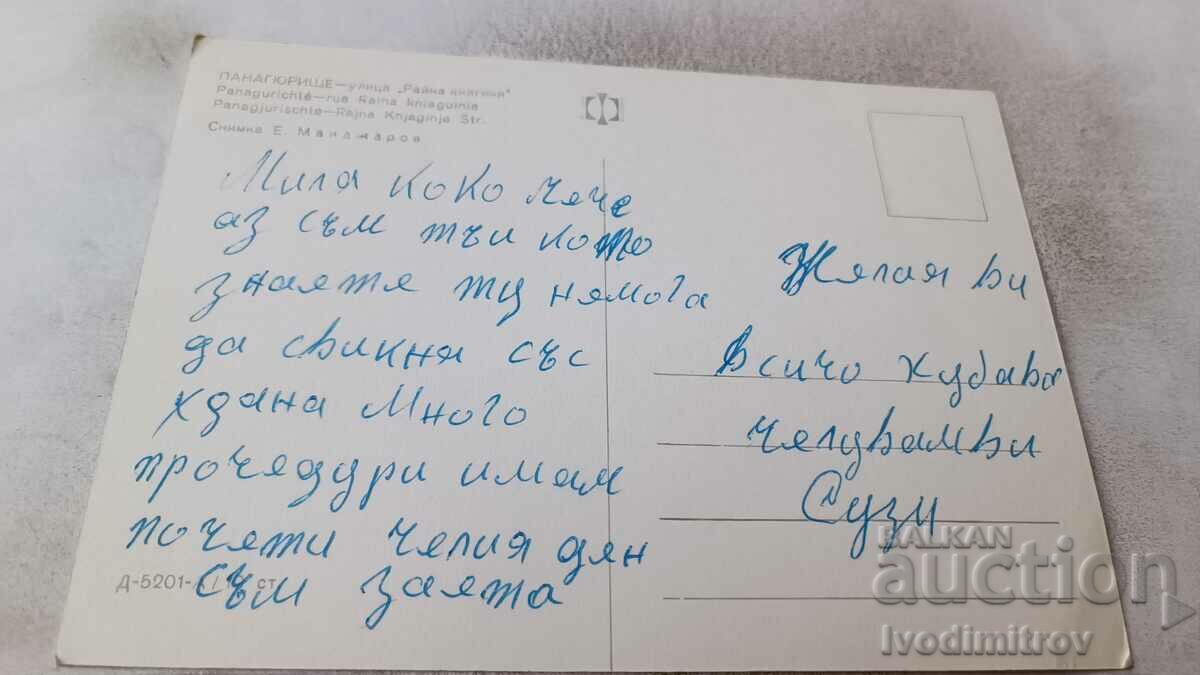 ПАНАГЮРИЩЕ — улица „Райна княгиня"
Panagurichté — rue Raïna kniaguinia
Panagjurischte — Rajna Knjaginja Str.
Снимка Е. Манджаров
Мила коко чече
аз съм тъи кото
знаяте ту нямога
да свикня със
хдана Много
прочедури имам
почяти челия дян
съм заята
Д-5201-
Желая ви
всичо хубаво
челувамви
Сузи
BALKAN
auction
Ivodimitrov